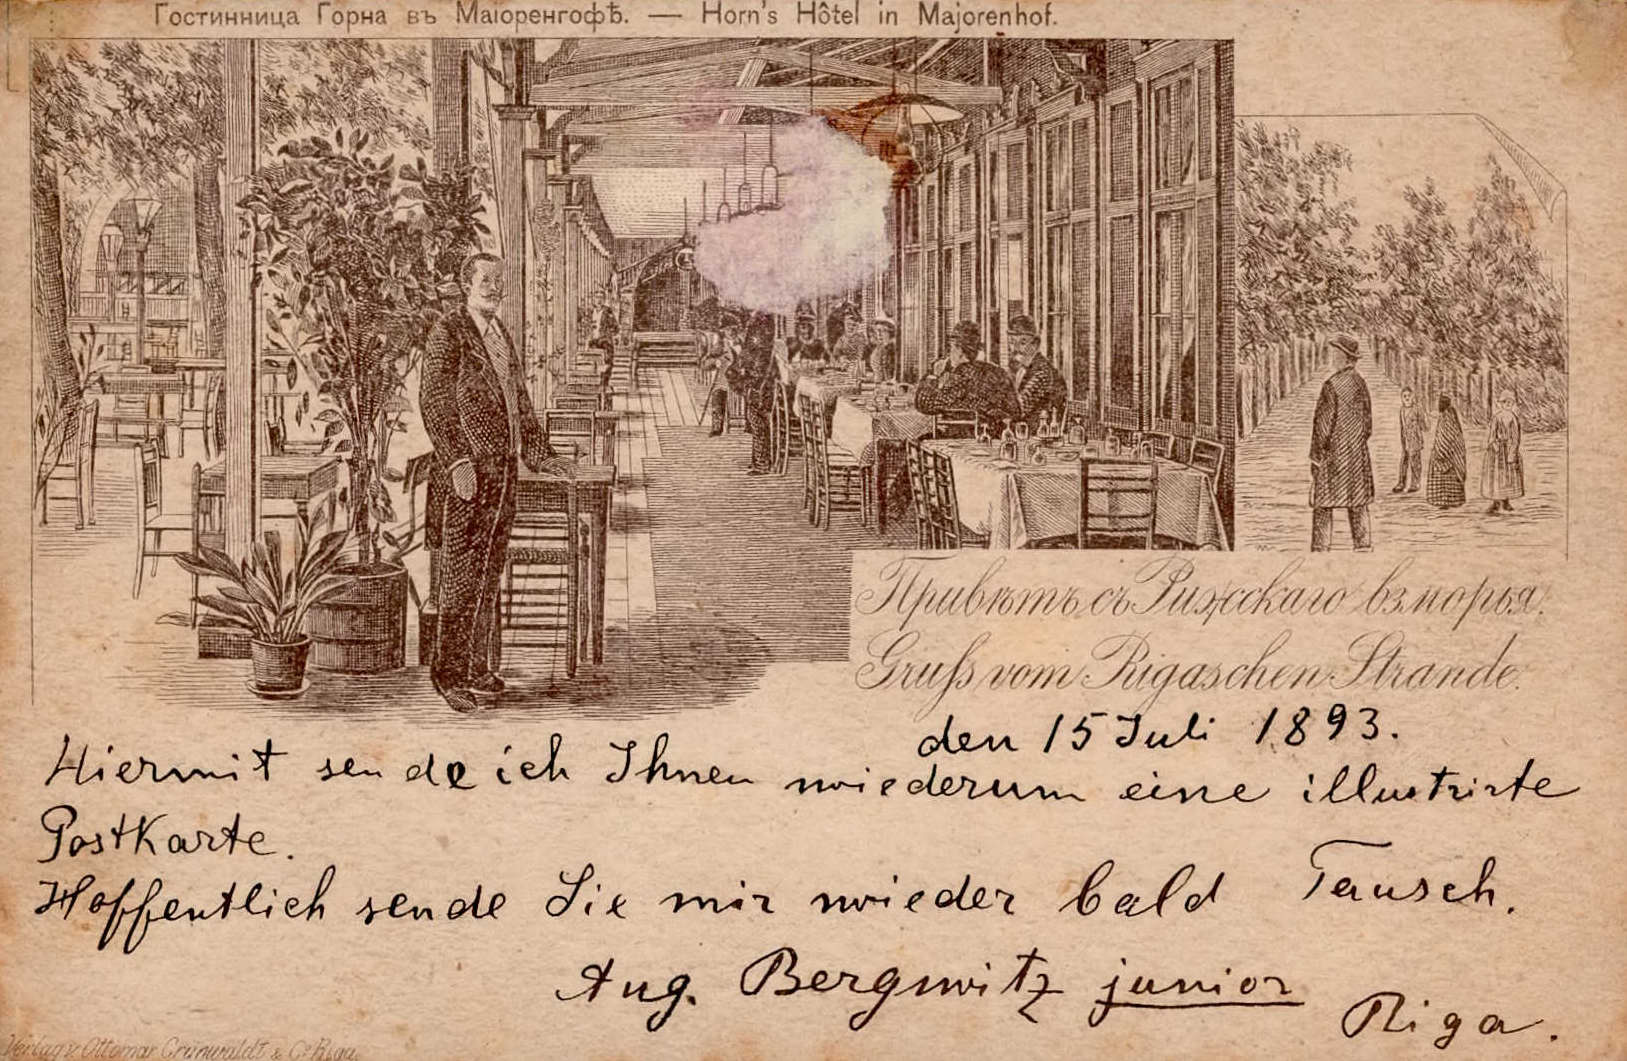 Гостинница Горна въ Маiоренгофѣ. — Horn's Hôtel in Majorenhof.
Привѣтъ съ Рижскаго взморья.
Gruſs vom Rigaschen Strande.
den 15 Juli 1893.
Hiermit sende ich Ihnen wiederum eine illustrirte
Postkarte.
Hoffentlich sende Sie mir wieder bald Tausch.
Aug. Bergwitz junior
Riga.
Verlag v. Ottomar Grünwaldt & Co Riga.